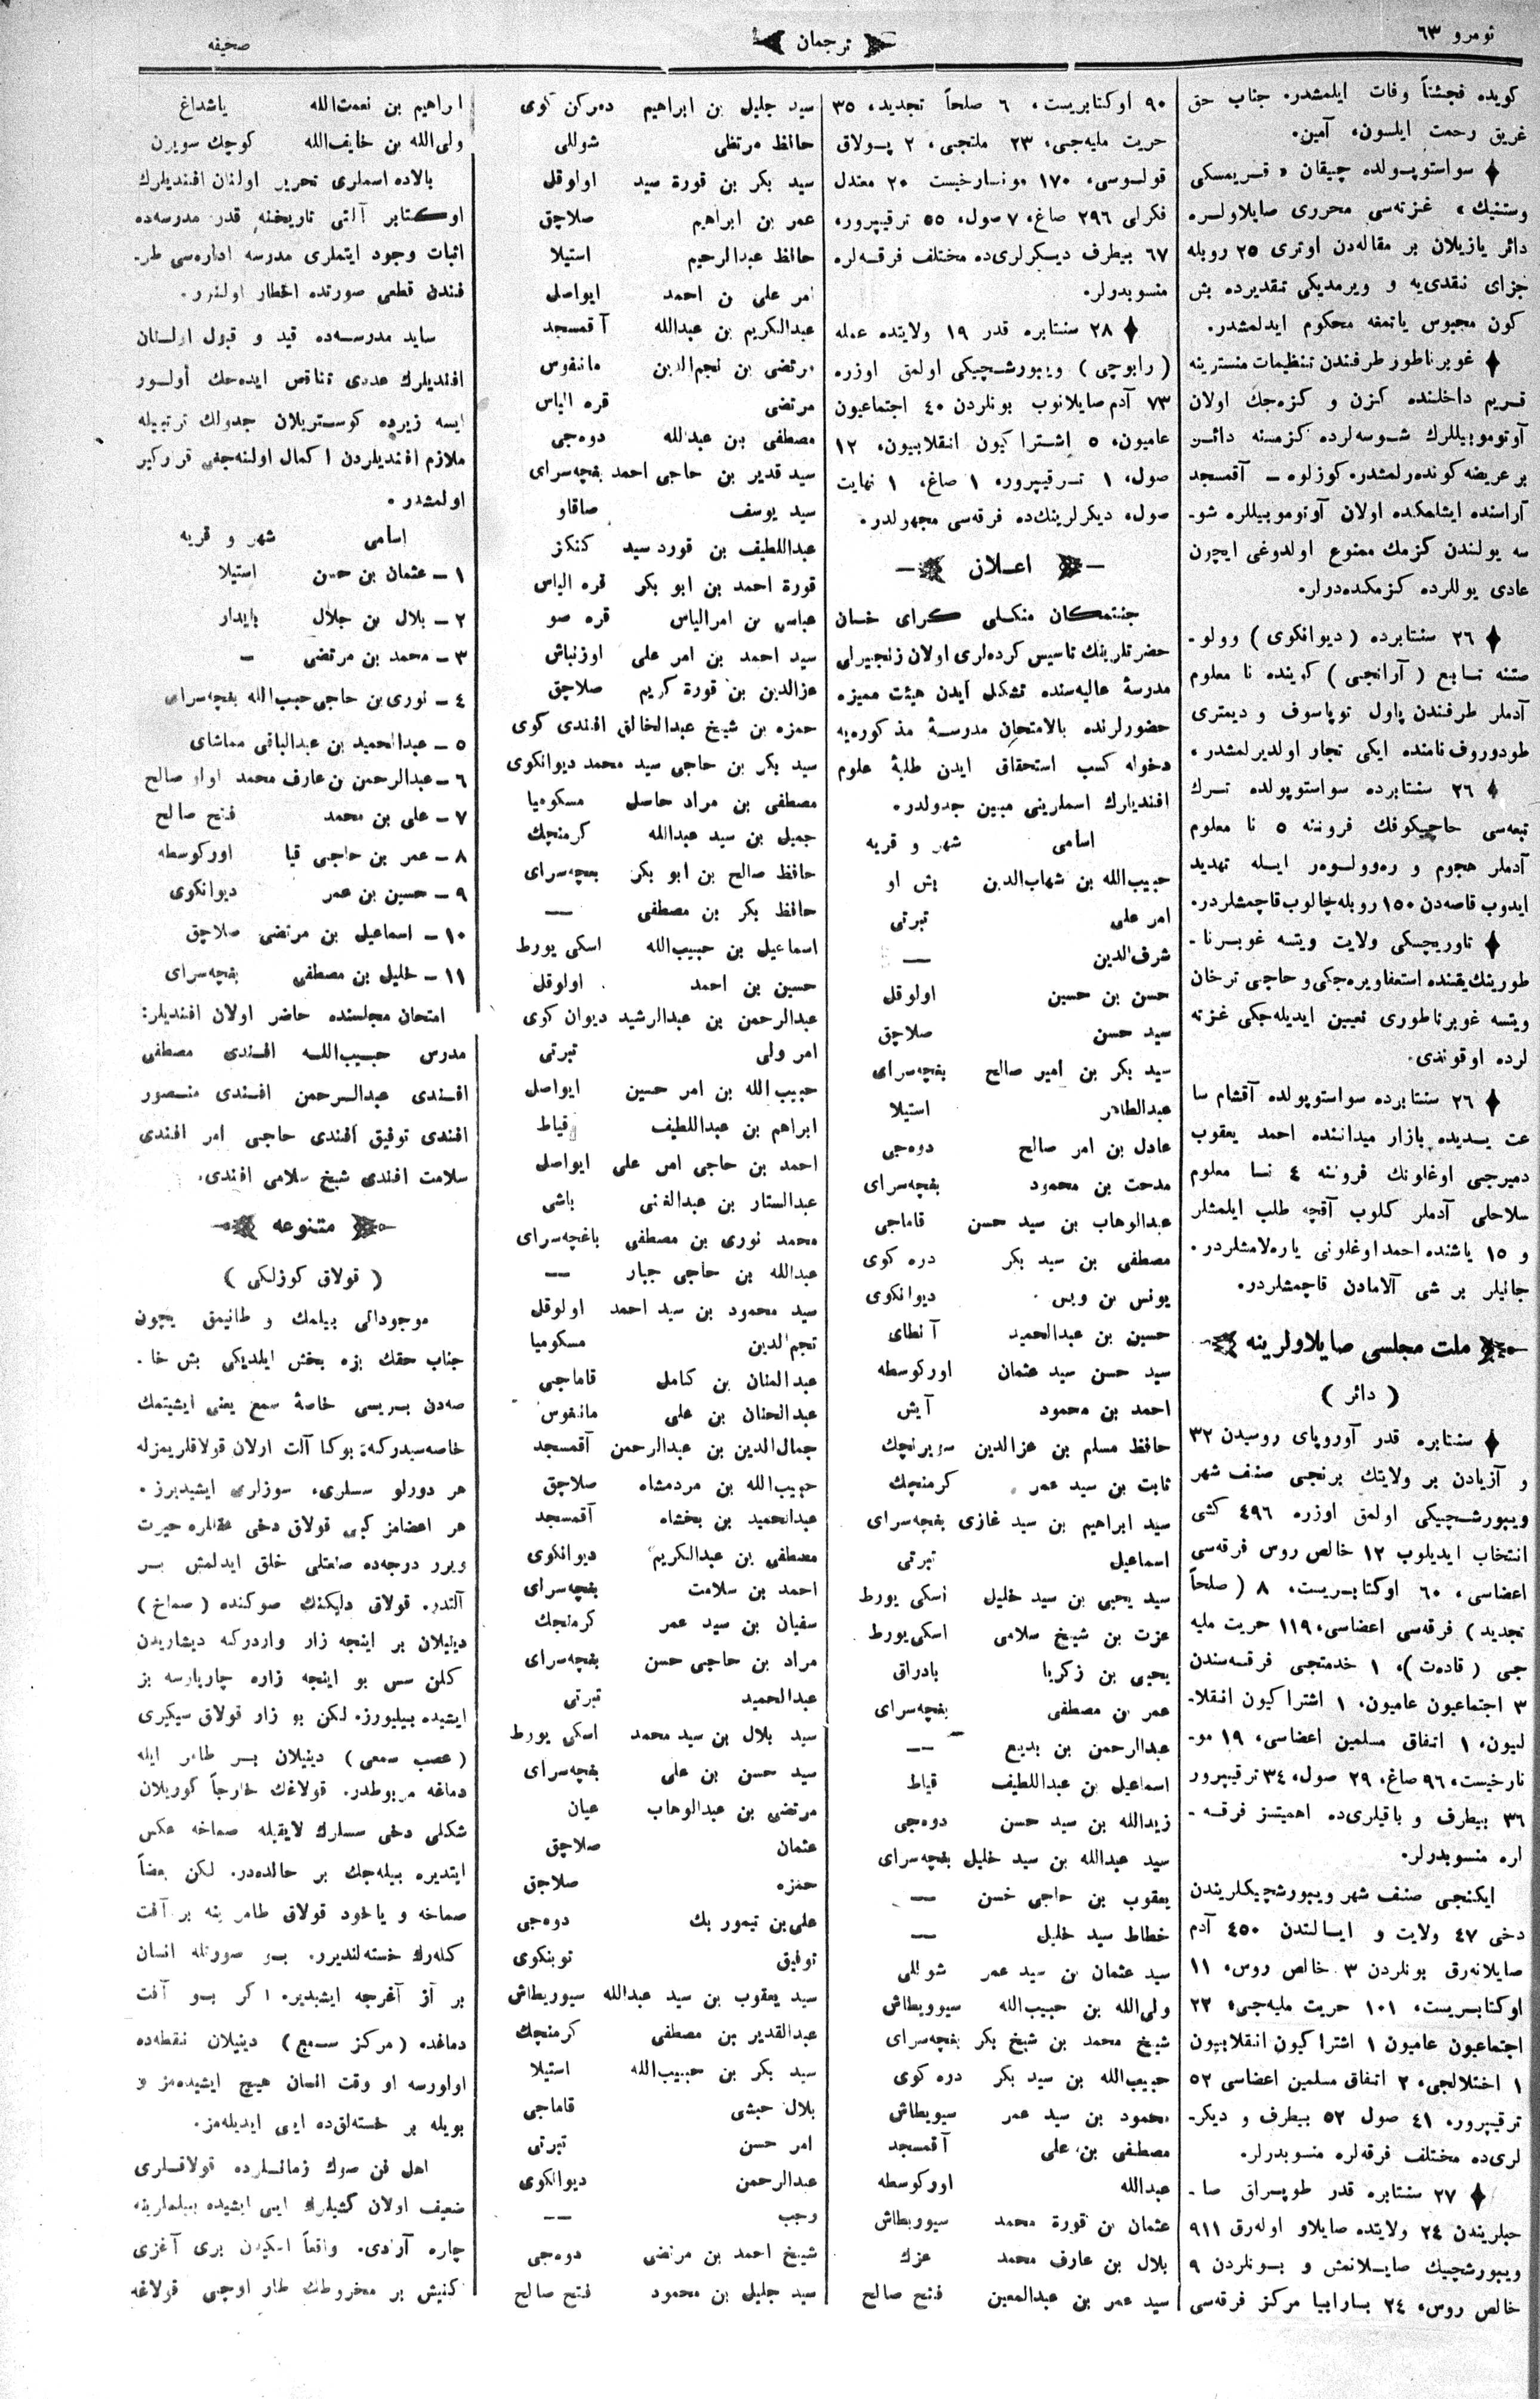 نومرو ٦٣
ترجمان
صحیفه
كویده فجئتاً وفات ایلمشدر. جناب حق
غریق رحمت ایلسون، آمین.
سواستوپولده چیقان « قریمسكی
وستنیك » غزته‌سی محرری صایلاولره
دائر یازیلان بر مقاله‌دن اوتری ٢٥ روبله
جزای نقدی‌یه و ویرمدیكی تقدیرده بش
كون محبوس یاتمغه محكوم ایدلمشدر.
غوبرناطور طرفندن تنظیمات منسترینه
قریم داخلنده كزن و كزه‌جك اولان
آوتوموبیللرك شوسه‌لرده كزمسنه دائر
بر عریضه كوندرلمشدر. كوزلوه ـ آقمسجد
آراسنده ایشلمكده اولان آوتوموبیللره شو-
سه یولندن كزمك ممنوع اولدوغی ایچون
عادی یوللرده كزمكده‌درلر.
٢٦ سنتابرده ( دیوانكوی ) وولو-
ستنه تابع ( آرانچی ) كوینده نا معلوم
آدملر طرفندن پاول توپاسوف و دیمتری
طودوروف نامنده ایكی تجار اولدیرلمشدر.
٢٦ سنتابرده سواستوپولده ترك
تبعه‌سی حاجیكوفك فروننه ٥ نا معلوم
آدملر هجوم و ره‌وولوه‌ر ایله تهدید
ایدوب قاصه‌دن ١٥٠ روبله چالوب قاچمشلردر.
تاوریچسكی ولایت ویتسه غوبرنا-
طورینك یقینده استعفا ویره‌جكی و حاجی ترخان
ویتسه غوبرناطوری تعیین ایدیله‌جكی غزته
لرده اوقوندی.
٢٦ سنتابرده سواستوپولده آقشام سا
عت یدیده بازار میداننده احمد یعقوب
دمیرجی اوغلونك فروننه ٤ نا معلوم
سلاحلی آدملر كلوب آقچه طلب ایلمشلر
و ١٥ یاشنده احمد اوغلونی یاره‌لامشلردر.
جانیلر بر شی آلامادن قاچمشلردر.
ملت مجلسی صایلاولرینه
( دائر )
سنتابره قدر آوروپای روسیدن ٣٢
و آزیادن بر ولایتك برنجی صنف شهر
ویبورشچیكی اولمق اوزره ٤٩٦ كشی
انتخاب ایدیلوب ١٢ خالص روس فرقه‌سی
اعضاسی، ٦٠ اوكتابریست، ٨ ( صلحاً
تجدید ) فرقه‌سی اعضاسی، ١١٩ حریت ملیه
جی ( قاده‌ت )، ١ خدمتجی فرقه‌سندن
٣ اجتماعیون عامیون، ١ اشتراكیون انقلا-
بیون، ١ اتفاق مسلمین اعضاسی، ١٩ مو-
نارخیست، ٩٦ صاغ، ٢٩ صول، ٣٤ ترقیپرور
٣٦ بیطرف و باقیلری‌ده اهمیتسز فرقه-
لره منسوبدرلر.
ایكنجی صنف شهر ویبورشچیكلریندن
دخی ٤٧ ولایت و ایالتدن ٤٥٠ آدم
صایلانه‌رق بونلردن ٣ خالص روس، ١١
اوكتابریست، ١٠١ حریت ملیه‌جی، ٢٢
اجتماعیون عامیون ١ اشتراكیون انقلابیون
١ اختلالجی، ٢ اتفاق مسلمین اعضاسی ٥٢
ترقیپرور، ٤١ صول ٥٢ بیطرف و دیكر-
لری‌ده مختلف فرقه‌لره منسوبدرلر.
٢٧ سنتابره قدر طوپراق صا-
حبلریندن ٢٤ ولایتده صایلاو اوله‌رق ٩١١
ویبورشچیك صایلانمش و بونلردن ٩
خالص روس، ٢٤ بسارابیا مركز فرقه‌سی
٩٠ اوكتابریست، ٦ صلحاً تجدید، ٣٥
حریت ملیه‌جی، ٢٣ ملتجی، ٢ پولاق
قولوسی، ١٧٠ مونارخیست ٢٠ معتدل
فكرلی ٢٩٦ صاغ، ٧ صول، ٥٥ ترقیپرور،
٦٧ بیطرف دیكرلری‌ده مختلف فرقه‌لره
منسوبدرلر.
٢٨ سنتابره قدر ١٩ ولایتده عمله
( رابوچی ) ویبورشچیكی اولمق اوزره
٧٣ آدم صایلانوب بونلردن ٤٠ اجتماعیون
عامیون، ٥ اشتراكیون انقلابیون، ١٢
صول، ١ ترقیپرور، ١ صاغ، ١ نهایت
صول، دیكرلرینك‌ده فرقه‌سی مجهولدر.
اعلان
جنتمكان منكلی كرای خان
حضرتلرینك تاسیس كرده‌لری اولان زنجیرلی
مدرسۀ عالیه‌سنده تشكل ایدن هیئت ممیزه
حضورلرنده بالامتحان مدرسۀ مذكوره‌یه
دخوله كسب استحقاق ایدن طلبۀ علوم
افندیلرك اسملرینی مبین جدولدر.
اسامی شهر و قریه
حبیب‌الله بن شهاب‌الدین یش او
امر علی تبرتی
شرف‌الدین —
حسن بن حسین اولوقل
سید حسن صلاجق
سید بكر بن امیر صالح بغچه‌سرای
عبدالطاهر استیلا
عادل بن امر صالح دوه‌جی
مدحت بن محمود بغچه‌سرای
عبدالوهاب بن سید حسن قاماجی
مصطفی بن سید بكر دره كوی
یونس بن ویس دیوانكوی
حسین بن عبدالحمید آنطای
سید حسن سید عثمان اوركوسطه
احمد بن محمود آیش
حافظ مسلم بن عزالدین سویرنچك
ثابت بن سید عمر كرمنچك
سید ابراهیم بن سید غازی بغچه‌سرای
اسماعیل تبرتی
سید یحیی بن سید خلیل اسكی یورط
عزت بن شیخ سلامی اسكی‌یورط
یحیی بن زكریا بادراق
عمر بن مصطفی بغچه‌سرای
عبدالرحمن بن بدیع —
اسماعیل بن عبداللطیف قیاط
زیدالله بن سید حسن دوه‌جی
سید عبدالله بن سید خلیل بغچه‌سرای
یعقوب بن حاجی حسن —
خطاط سید خلیل —
سید عثمان بن سید عمر شوللی
ولی‌الله بن حبیب‌الله سیوریطاش
شیخ محمد بن شیخ بكر بغچه‌سرای
حبیب‌الله بن سید بكر دره كوی
محمود بن سید عمر سیویطاش
مصطفی بن علی آقمسجد
عبدالله اوركوسطه
عثمان بن قورة محمد سیوریطاش
بلال بن عارف محمد عزك
سید عمر بن عبدالمعین فتح صالح
سید جلیل بن ابراهیم ده‌مركن كوی
حافظ مرتظی شوللی
سید بكر بن قورة سید اولوقل
عمر بن ابراهیم صلاجق
حافظ عبدالرحیم استیلا
امر علی بن احمد ایواصل
عبدالكریم بن عبدالله آقمسجد
مرتضی بن نجم‌الدین مانفوس
مرتضی قره الیاس
مصطفی بن عبدالله دوه‌جی
سید قدیر بن حاجی احمد بغچه‌سرای
سید یوسف صاقاو
عبداللطیف بن قورد سید كنكز
قورة احمد بن ابو بكر قره الیاس
عباس بن امرالیاس قره صو
سید احمد بن امر علی اوزنباش
عزالدین بن قورة كریم صلاجق
حمزه بن شیخ عبدالخالق افندی كوی
سید بكر بن حاجی سید محمد دیوانكوی
مصطفی بن مراد حاصل مسكومیا
جمیل بن سید عبدالله كرمنچك
حافظ صالح بن ابو بكر بغچه‌سرای
حافظ بكر بن مصطفی —
اسماعیل بن حبیب‌الله اسكی یورط
حسین بن احمد اولوقل
عبدالرحمن بن عبدالرشید دیوان كوی
امر ولی تبرتی
حبیب الله بن امر حسین ایواصل
ابراهم بن عبداللطیف قیاط
احمد بن حاجی امر علی ایواصل
عبدالستار بن عبدالغنی باشی
محمد نوری بن مصطفی باغچه‌سرای
عبدالله بن حاجی جبار —
سید محمود بن سید احمد اولوقل
نجم‌الدین مسكومیا
عبدالمنان بن كامل قاماجی
عبدالحنان بن علی مانفوس
جمال‌الدین بن عبدالرحمن آقمسجد
حبیب‌الله بن مردمشاه صلاجق
عبدالحمید بن بخشاه آقمسجد
مصطفی بن عبدالكریم دیوانكوی
احمد بن سلامت بغچه‌سرای
سفیان بن سید عمر كرمنچك
مراد بن حاجی حسن بغچه‌سرای
عبدالحمید تبرتی
سید بلال بن سید محمد اسكی یورط
سید حسن بن علی بغچه‌سرای
مرتضی بن عبدالوهاب عیان
عثمان صلاجق
حمزه صلاجق
علی بن تیمور بك دوه‌جی
توفیق توبنكوی
سید یعقوب بن سید عبدالله سیوریطاش
عبدالقدیر بن مصطفی كرمنچك
سید بكر بن حبیب‌الله استیلا
بلال حبشی قاماجی
امر حسن تبرتی
عبدالرحمن دیوانكوی
رجب —
شیخ احمد بن مرتضی دوه‌جی
سید جلیل بن محمود فتح صالح
ابراهیم بن نعمت‌الله یاشداغ
ولی‌الله بن خایف‌الله كوچك سویرن
بالاده اسملری تحریر اولنان افندیلرك
اوكتابر آلتی تاریخنه قدر مدرسه‌ده
اثبات وجود ایتملری مدرسه اداره‌سی طر-
فندن قطعی صورتده اخطار اولنور.
ساید مدرسه‌ده قید و قبول اولنان
افندیلرك عددی تناقص ایده‌جك اولور
ایسه زیرده كوستریلان جدولك ترتیبیله
ملازم افندیلردن اكمال اولنه‌جغی قرارگیر
اولمشدر.
اسامی شهر و قریه
١ ـ عثمان بن حسن استیلا
٢ ـ بلال بن جلال بایدار
٣ ـ محمد بن مرتضی —
٤ ـ نوری بن حاجی حبیب‌الله بغچه‌سرای
٥ ـ عبدالحمید بن عبدالباقی مماشای
٦ ـ عبدالرحمن بن عارف محمد اولو صالح
٧ ـ علی بن محمد فتح صالح
٨ ـ عمر بن حاجی قیا اوركوسطه
٩ ـ حسین بن عمر دیوانكوی
١٠ ـ اسماعیل بن مرتضی صلاجق
١١ ـ خلیل بن مصطفی بغچه‌سرای
امتحان مجلسنده حاضر اولان افندیلر:
مدرس حبیب‌الله افندی مصطفی
افندی عبدالرحمن افندی منصور
افندی توفیق افندی حاجی امر افندی
سلامت افندی شیخ سلامی افندی.
متنوعه
( قولاق كوزلكی )
موجوداتی بیلمك و طانیمق یچون
جناب حقك بزه بخش ایلدیكی بش خا-
صه‌دن بریسی خاصۀ سمع یعنی ایشیتمك
خاصه‌سیدركه، بوكا آلت اولان قولاقلریمزله
هر دورلو سسلری، سوزلری ایشیدیرز.
هر اعضامز كبی قولاق دخی عقللره حیرت
ویرر درجه‌ده صنعتلی خلق ایدلمش بر
آلتدر. قولاق دلیكنك صوكنده ( صماخ )
دینیلان بر اینجه زار واردركه دیشاریدن
كلن سس بو اینجه زاره چارپارسه بز
ایشیده بیلیورز. لكن بو زار قولاق سیكیری
( عصب سمعی ) دینیلان بر طامر ایله
دماغه مربوطدر. قولاغك خارجاً كوریلان
شكلی دخی سسلرك لایقیله صماخه عكس
ایتدیره بیله‌جك بر حالده‌در. لكن بعضاً
صماخه و یاخود قولاق طامرینه بر آفت
كله‌رك خسته‌لندیرر. بو صورتله انسان
بر آز آغرجه ایشیدیر. اكر بو آفت
دماغده ( مركز سمع ) دینیلان نقطه‌ده
اولورسه او وقت انسان هیچ ایشیده‌مز و
بویله بر خسته‌لق‌ده ایی ایدیله‌مز.
اهل فن صوك زمانلرده قولاقلری
ضعیف اولان كشیلرك ایی ایشیده بیلملرینه
چاره آرادی. واقعاً اسكیدن بری آغزی
كنیش بر مخروطك طار اوجی قولاغه